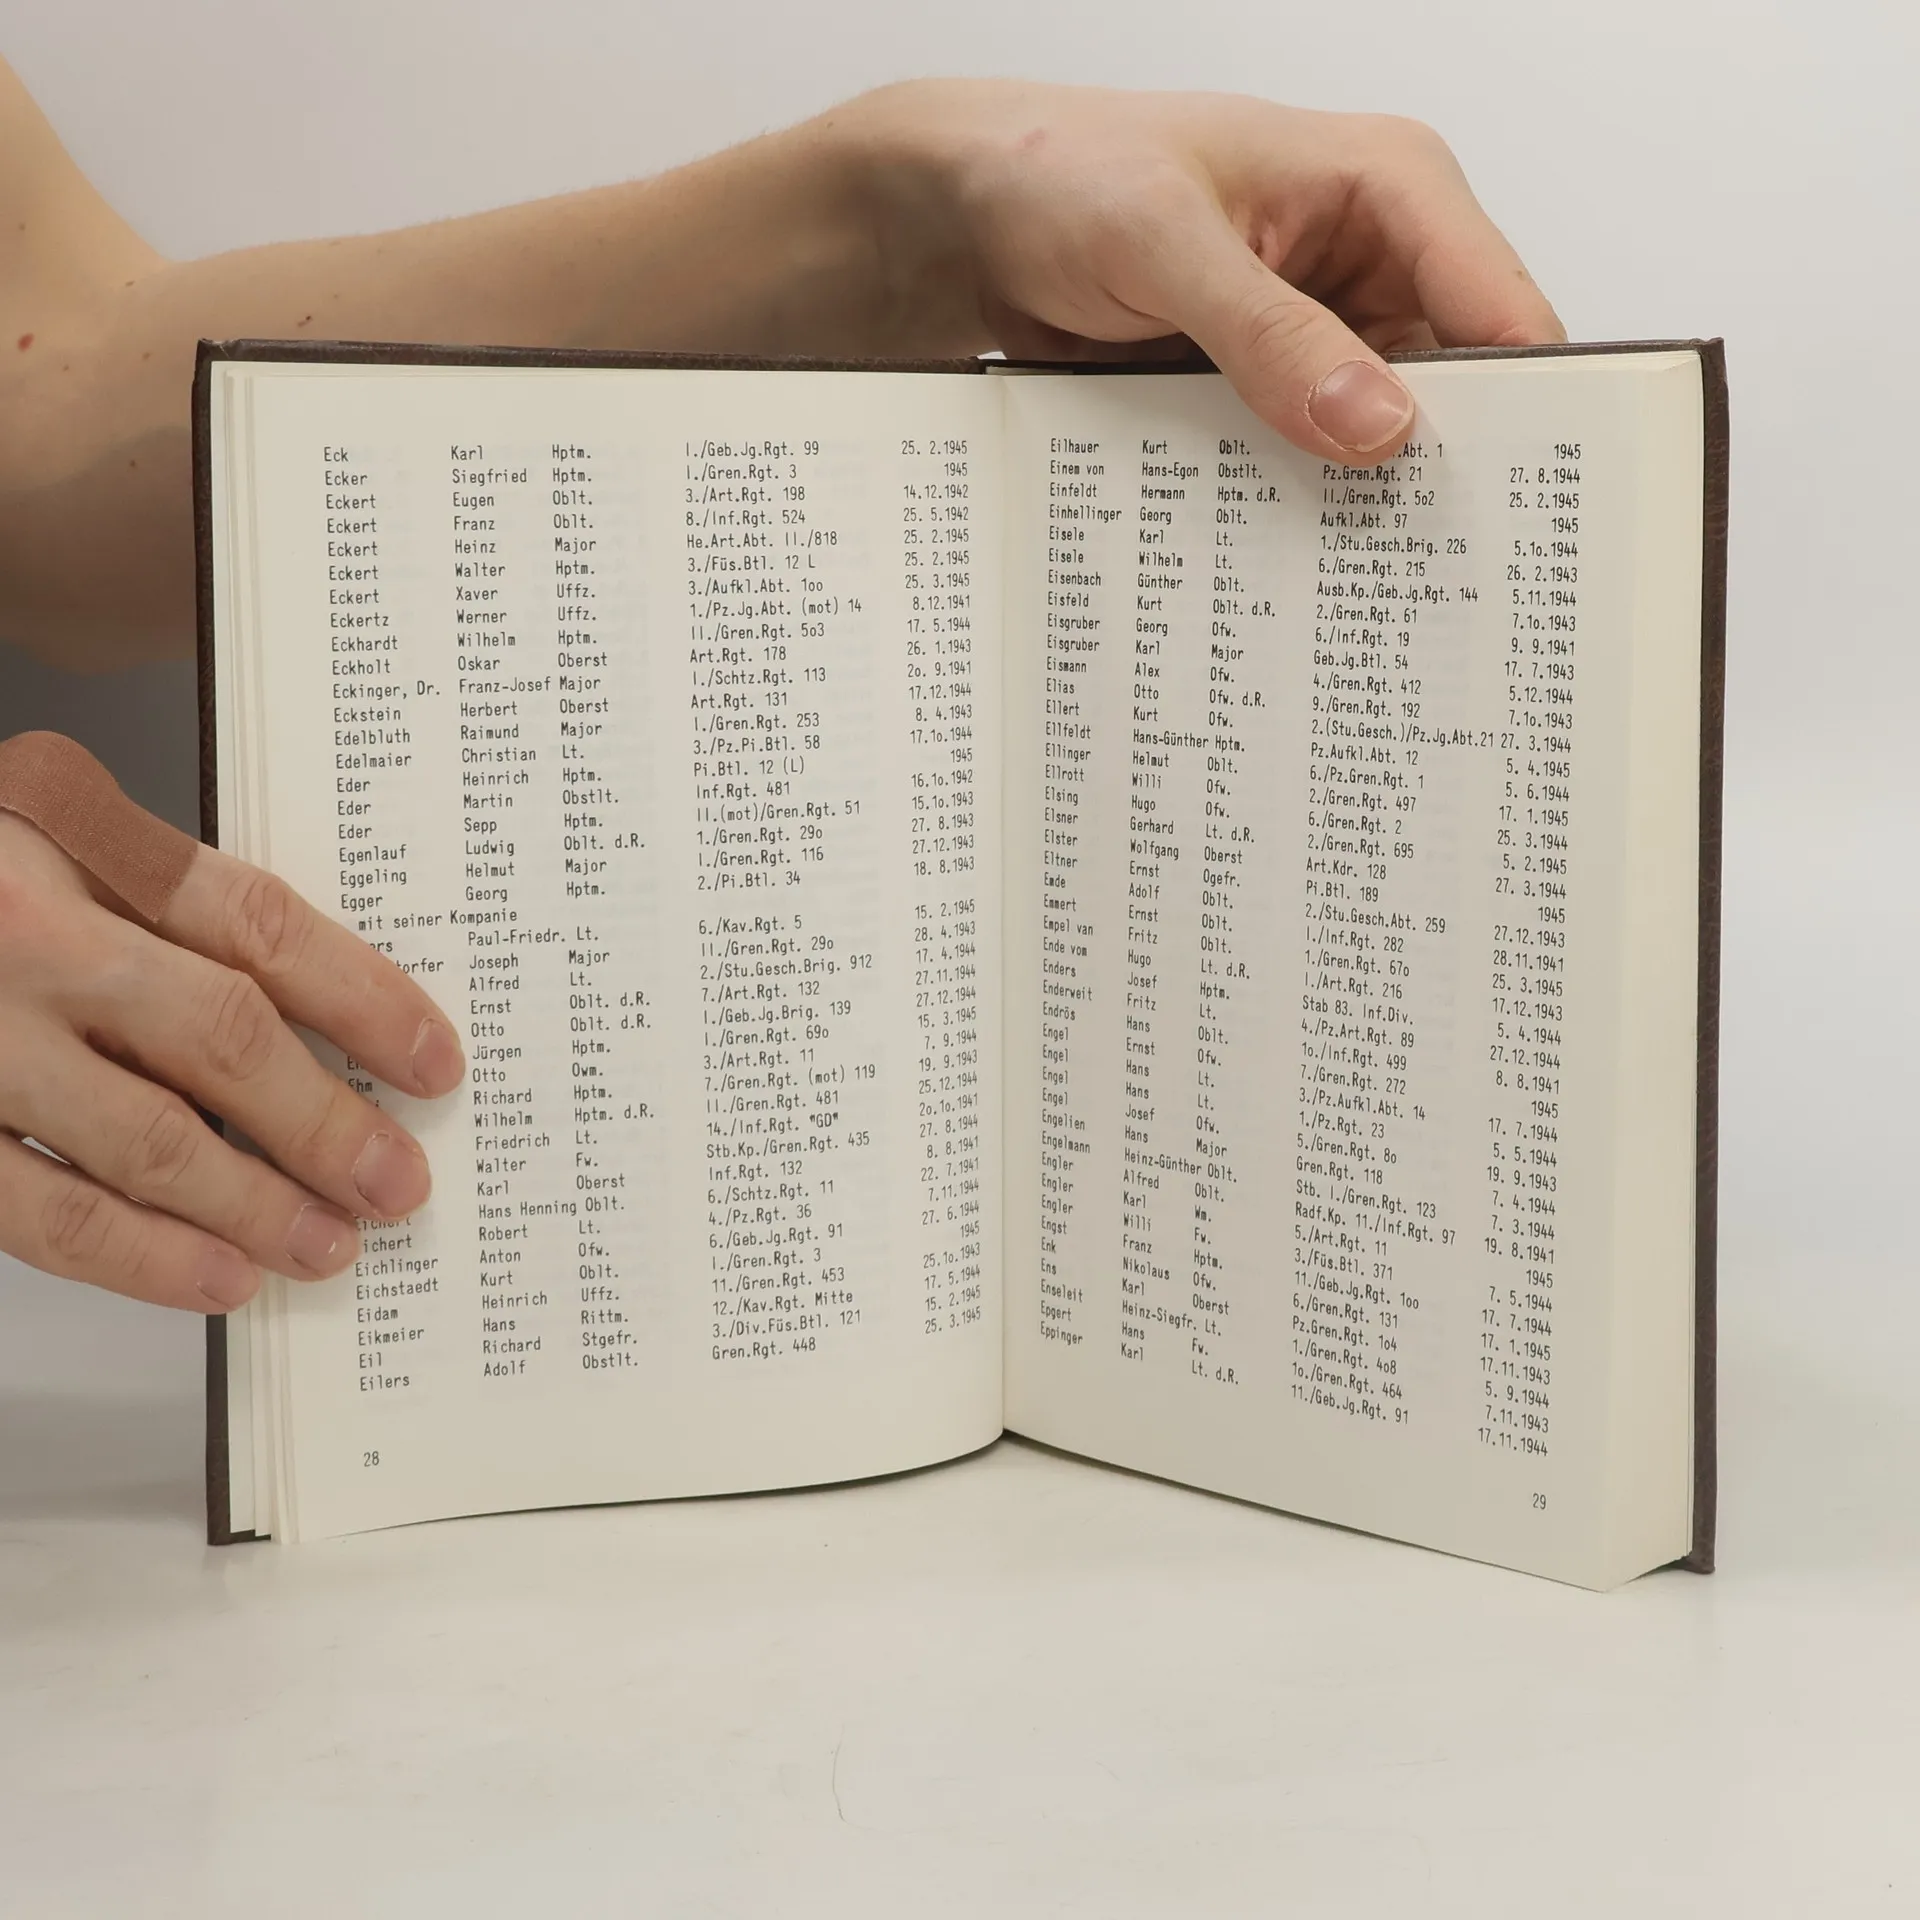 Eck Karl Hptm. I./Geb.Jg.Rgt. 99 25. 2.1945
Ecker Siegfried Hptm. I./Gren.Rgt. 3 1945
Eckert Eugen Oblt. 3./Art.Rgt. 198 14.12.1942
Eckert Franz Oblt. 8./Inf.Rgt. 524 25. 5.1942
Eckert Heinz Major He.Art.Abt. II./818 25. 2.1945
Eckert Walter Hptm. 3./Füs.Btl. 12 L 25. 2.1945
Eckert Xaver Uffz. 3./Aufkl.Abt. 1oo 25. 3.1945
Eckertz Werner Uffz. 1./Pz.Jg.Abt. (mot) 14 8.12.1941
Eckhardt Wilhelm Hptm. II./Gren.Rgt. 5o3 17. 5.1944
Eckholt Oskar Oberst Art.Rgt. 178 26. 1.1943
Eckinger, Dr. Franz-Josef Major I./Schtz.Rgt. 113 2o. 9.1941
Eckstein Herbert Oberst Art.Rgt. 131 17.12.1944
Edelbluth Raimund Major I./Gren.Rgt. 253 8. 4.1943
Edelmaier Christian Lt. 3./Pz.Pi.Btl. 58 17.1o.1944
Eder Heinrich Hptm. Pi.Btl. 12 (L) 1945
Eder Martin Obstlt. Inf.Rgt. 481 16.1o.1942
Eder Sepp Hptm. II.(mot)/Gren.Rgt. 51 15.1o.1943
Egenlauf Ludwig Oblt. d.R. 1./Gren.Rgt. 29o 27. 8.1943
Eggeling Helmut Major I./Gren.Rgt. 116 27.12.1943
Egger Georg Hptm. 2./Pi.Btl. 34 18. 8.1943
mit seiner Kompanie
ers Paul-Friedr. Lt. 6./Kav.Rgt. 5 15. 2.1945
torfer Joseph Major II./Gren.Rgt. 29o 28. 4.1943
Alfred Lt. 2./Stu.Gesch.Brig. 912 17. 4.1944
Ernst Oblt. d.R. 7./Art.Rgt. 132 27.11.1944
Otto Oblt. d.R. I./Geb.Jg.Brig. 139 27.12.1944
Jürgen Hptm. I./Gren.Rgt. 69o 15. 3.1945
Otto Owm. 3./Art.Rgt. 11 7. 9.1944
Richard Hptm. 7./Gren.Rgt. (mot) 119 19. 9.1943
Wilhelm Hptm. d.R. II./Gren.Rgt. 481 25.12.1944
Friedrich Lt. 14./Inf.Rgt. "GD" 2o.1o.1941
Walter Fw. Stb.Kp./Gren.Rgt. 435 27. 8.1944
Karl Oberst Inf.Rgt. 132 8. 8.1941
Hans Henning Oblt. 6./Schtz.Rgt. 11 22. 7.1941
ichert Robert Lt. 4./Pz.Rgt. 36 7.11.1944
Eichlinger Anton Ofw. 6./Geb.Jg.Rgt. 91 27. 6.1944
Eichstaedt Kurt Oblt. I./Gren.Rgt. 3 1945
Eidam Heinrich Uffz. 11./Gren.Rgt. 453 25.1o.1943
Eikmeier Hans Rittm. 12./Kav.Rgt. Mitte 17. 5.1944
Eil Richard Stgefr. 3./Div.Füs.Btl. 121 15. 2.1945
Eilers Adolf Obstlt. Gren.Rgt. 448 25. 3.1945
28
Eilhauer Kurt Oblt. .Abt. 1 1945
Einem von Hans-Egon Obstlt. Pz.Gren.Rgt. 21 27. 8.1944
Einfeldt Hermann Hptm. d.R. II./Gren.Rgt. 5o2 25. 2.1945
Einhellinger Georg Oblt. Aufkl.Abt. 97 1945
Eisele Karl Lt. 1./Stu.Gesch.Brig. 226 5.1o.1944
Eisele Wilhelm Lt. 6./Gren.Rgt. 215 26. 2.1943
Eisenbach Günther Oblt. Ausb.Kp./Geb.Jg.Rgt. 144 5.11.1944
Eisfeld Kurt Oblt. d.R. 2./Gren.Rgt. 61 7.1o.1943
Eisgruber Georg Ofw. 6./Inf.Rgt. 19 9. 9.1941
Eisgruber Karl Major Geb.Jg.Btl. 54 17. 7.1943
Eismann Alex Ofw. 4./Gren.Rgt. 412 5.12.1944
Elias Otto Ofw. d.R. 9./Gren.Rgt. 192 7.1o.1943
Ellert Kurt Ofw. 2.(Stu.Gesch.)/Pz.Jg.Abt.21 27. 3.1944
Ellfeldt Hans-Günther Hptm. Pz.Aufkl.Abt. 12 5. 4.1945
Ellinger Helmut Oblt. 6./Pz.Gren.Rgt. 1 5. 6.1944
Ellrott Willi Ofw. 2./Gren.Rgt. 497 17. 1.1945
Elsing Hugo Ofw. 6./Gren.Rgt. 2 25. 3.1944
Elsner Gerhard Lt. d.R. 2./Gren.Rgt. 695 5. 2.1945
Elster Wolfgang Oberst Art.Kdr. 128 27. 3.1944
Eltner Ernst Ogefr. Pi.Btl. 189 1945
Emde Adolf Oblt. 2./Stu.Gesch.Abt. 259 27.12.1943
Emmert Ernst Oblt. I./Inf.Rgt. 282 28.11.1941
Empel van Fritz Oblt. 1./Gren.Rgt. 67o 25. 3.1945
Ende vom Hugo Lt. d.R. I./Art.Rgt. 216 17.12.1943
Enders Josef Hptm. Stab 83. Inf.Div. 5. 4.1944
Enderweit Fritz Lt. 4./Pz.Art.Rgt. 89 27.12.1944
Endrös Hans Oblt. 1o./Inf.Rgt. 499 8. 8.1941
Engel Ernst Ofw. 7./Gren.Rgt. 272 1945
Engel Hans Lt. 3./Pz.Aufkl.Abt. 14 17. 7.1944
Engel Hans Lt. 1./Pz.Rgt. 23 5. 5.1944
Engel Josef Ofw. 5./Gren.Rgt. 8o 19. 9.1943
Engelien Hans Major Gren.Rgt. 118 7. 4.1944
Engelmann Heinz-Günther Oblt. Stb. I./Gren.Rgt. 123 7. 3.1944
Engler Alfred Oblt. Radf.Kp. 11./Inf.Rgt. 97 19. 8.1941
Engler Karl Wm. 5./Art.Rgt. 11 1945
Engler Willi Fw. 3./Füs.Btl. 371 7. 5.1944
Engst Franz Hptm. 11./Geb.Jg.Rgt. 1oo 17. 7.1944
Enk Nikolaus Ofw. 6./Gren.Rgt. 131 17. 1.1945
Ens Karl Oberst Pz.Gren.Rgt. 1o4 17.11.1943
Enseleit Heinz-Siegfr. Lt. 1./Gren.Rgt. 4o8 5. 9.1944
Epgert Hans Fw. 1o./Gren.Rgt. 464 7.11.1943
Eppinger Karl Lt. d.R. 11./Geb.Jg.Rgt. 91 17.11.1944
29